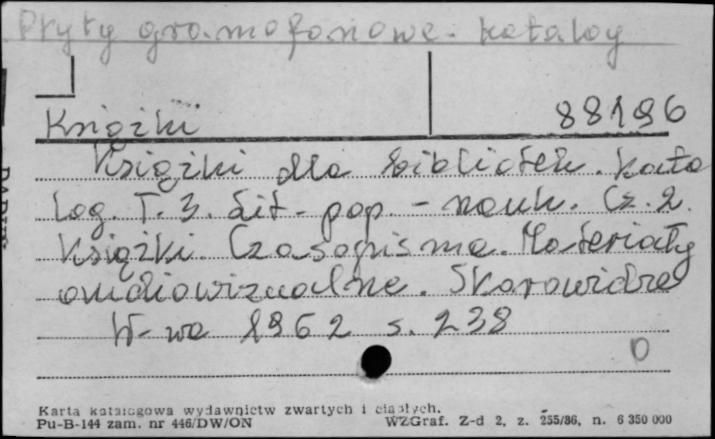 Płyty gramofonowe - katalog
Książki 88196
Książki dla bibliotek. Kata
log. T. 3. Lit. pop. - nauk. Cz. 2.
Książki. Czasopisma. Materiały
audiowizualne. Skorowidze
W-wa 1962 s. 238
D
Karta katalogowa wydawnictw zwartych i ciągłych.
Pu-B-144 zam. nr 446/DW/ON WZGraf. Z-d 2, z. 255/86, n. 6 350 000